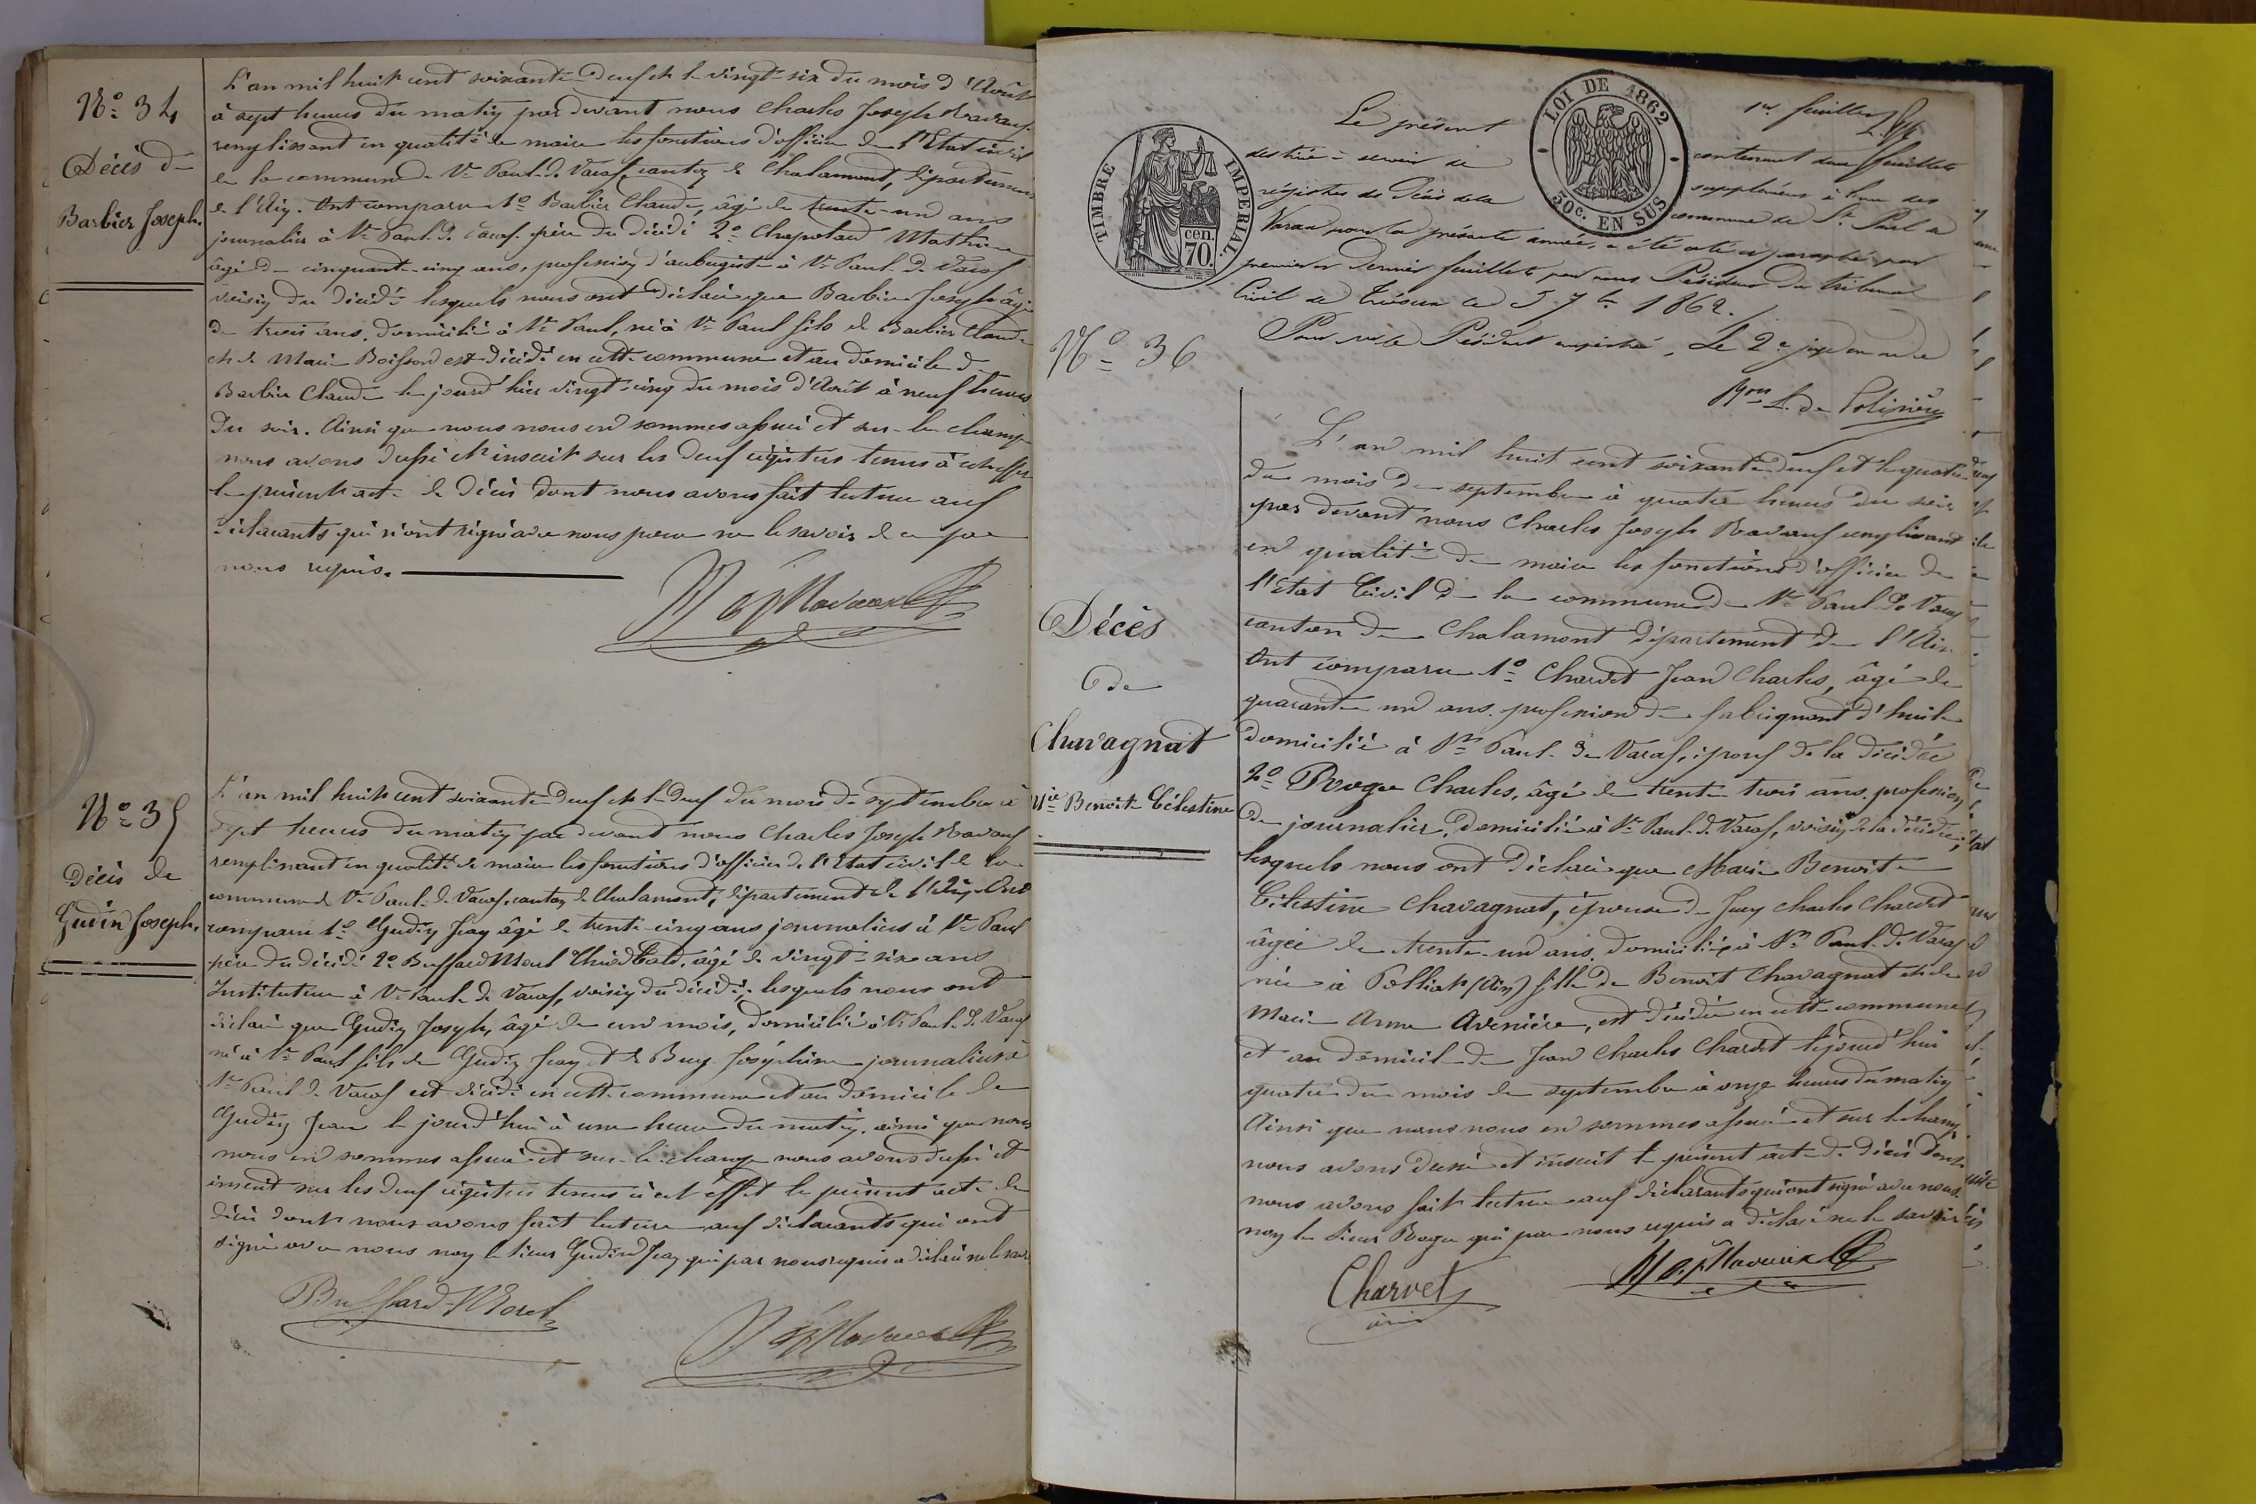 N° 34
Décès de
Barbier Joseph.
L'an mil huit cent soixante deux et le vingt-six du mois d'Août
à sept heures du matin par devant nous Charles Joseph Ravaux
remplissant en qualité de maire les fonctions d'officier de l'Etat civil
de la commune de St Paul de Varax, canton de Chalamont, département
de l'Ain. Ont comparu 1° Barbier Claude, âgé de trente-un ans
journalier à St Paul de Varax père du décédé 2° Chapotard Mathieu
âgé de cinquante-cinq ans, profession d'aubergiste à St Paul de Varax
voisin du décédé lesquels nous ont déclaré que Barbier Joseph âgé
de trois ans, domicilié à St Paul, né à St Paul fils de Barbier Claude
et de Marie Boisson est décédé en cette commune et au domicile de
Barbier Claude le jourd'hier vingt-cinq du mois d'Août à neuf heures
du soir. Ainsi que nous nous en sommes assuré et sur-le-champ
nous avons dressé et inscrit sur les deux registres tenus à cet effet
le présent acte de décès dont nous avons fait lecture aux
déclarants qui n'ont signé avec nous pour ne le savoir de ce par
nous requis.
N° 35
Décès de
Gudin Joseph.
L'an mil huit cent soixante deux et le deux du mois de septembre à
sept heures du matin par devant nous Charles Joseph Ravaux
remplissant en qualité de maire les fonctions d'officier de l'Etat civil de la
commune de St Paul de Varax, canton de Chalamont, département de l'Ain. Ont
comparu 1° Gudin Jean âgé de trente-cinq ans journalier à St Paul
père du décédé 2° Buffard Morel âgé de vingt-six ans
Instituteur à St Paul de Varax, voisin du décédé, lesquels nous ont
déclaré que Gudin Joseph, âgé de un mois, domicilié à St Paul de Varax
né à St Paul fils de Gudin Jean et de Buy Joséphine journaliers à
St Paul de Varax est décédé en cette commune et au domicile de
Gudin Jean le jourd'hui à une heure du matin, ainsi que nous
nous en sommes assuré et sur-le-champ nous avons dressé et
inscrit sur les deux registres tenus à cet effet le présent acte de
décès dont nous avons fait lecture aux déclarants qui ont
signé avec nous non le sieur Gudin Jean qui par nous requis a déclaré ne le savoir
Buffard-Morel
TIMBRE IMPERIAL.
cen.
70.
LOI DE 1862
50c. EN SUS
1er feuillet
Le présent contenant deux feuillets
destiné à servir de supplément à l'un des
registres de Décès de la commune de St Paul de
Varax pour la présente année, a été coté et paraphé par
premier et dernier feuillets par nous Président du tribunal
Civil de Trévoux le 5 7bre 1862.
Pour le Président empêché, Le 2e juge
N° 36
Décès
de
Chavagnat
Mie Benoite Célestine
L'an mil huit cent soixante deux et le quatre
du mois de septembre à quatre heures du soir
par devant nous Charles Joseph Ravaux remplissant
en qualité de maire les fonctions d'officier de
l'Etat Civil de la commune de St Paul de Varax
canton de Chalamont département de l'Ain
Ont comparu 1° Charvet Jean Charles, âgé de
quarante un ans, profession de fabriquant d'huile
domicilié à St Paul de Varax, époux de la décédée
2° Roger Charles, âgé de trente trois ans, profession
de journalier, domicilié à St Paul de Varax, voisin de la décédée,
lesquels nous ont déclaré que Marie Benoite
Célestine Chavagnat, épouse de Jean Charles Charvet
âgée de trente-un ans, domiciliée à St Paul de Varax
née à Polliat (Ain) fille de Benoit Chavagnat et de
Marie Anne Avenière, est décédée en cette commune
et au domicile de Jean Charles Charvet le jourd'hui
quatre du mois de septembre à onze heures du matin
Ainsi que nous nous en sommes assuré et sur le champ
nous avons dressé et inscrit le présent acte de décès dont
nous avons fait lecture aux déclarants qui ont signé avec nous
non le sieur Roger qui par nous requis a déclaré ne le savoir
Charvet